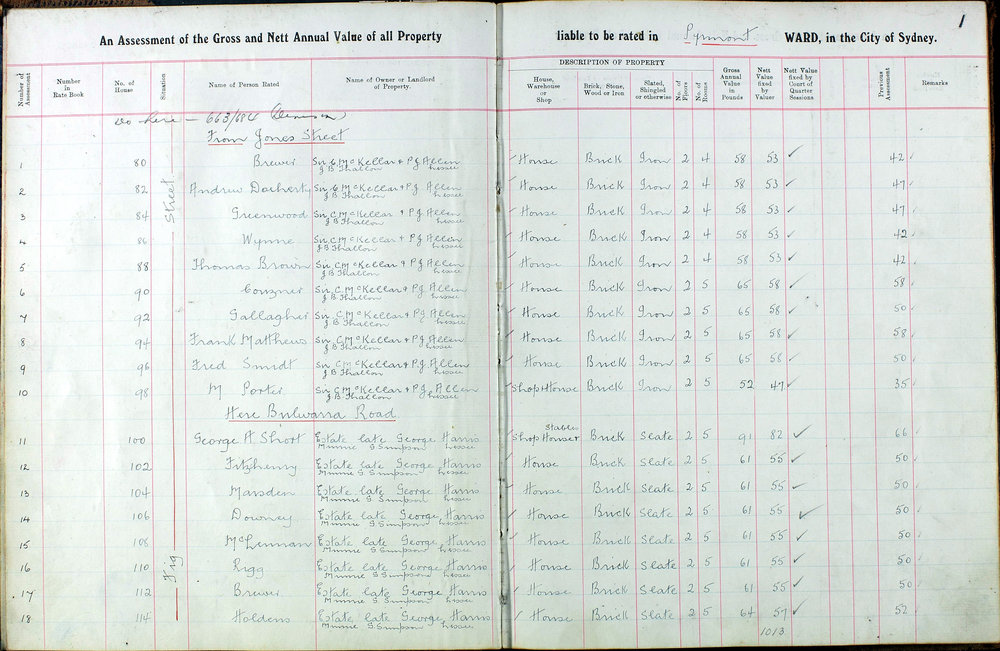 An Assessment of the Gross and Nett Annual Value of all Property liable to be rated in Pyrmont WARD, in the City of Sydney. 1
DESCRIPTION OF PROPERTY
Number of Assessment Number in Rate Book No. of House Situation Name of Person Rated Name of Owner or Landlord of Property. House, Warehouse or Shop Brick, Stone, Wood or Iron Slated, Shingled or otherwise No. of Floors No. of Rooms Gross Annual Value in Pounds Nett Value fixed by Valuer Nett Value fixed by Court of Quarter Sessions Previous Assessment Remarks
Do here - 663/684
From Jones Street
Fig Street
1 80 Brewer Sir C McKellar & P J Allen House Brick Iron 2 4 58 53 ✓ 42 ✓
J B Thallon Lessee
2 82 Andrew Docherty Sir C McKellar & P J Allen House Brick Iron 2 4 58 53 ✓ 47 ✓
J B Thallon Lessee
3 84 Greenwood Sir C McKellar & P J Allen House Brick Iron 2 4 58 53 ✓ 47 ✓
J B Thallon Lessee
4 86 Wynne Sir C McKellar & P J Allen House Brick Iron 2 4 58 53 ✓ 42 ✓
J B Thallon Lessee
5 88 Thomas Brown Sir C McKellar & P J Allen House Brick Iron 2 4 58 53 ✓ 42 ✓
J B Thallon Lessee
6 90 Couzner Sir C McKellar & P J Allen House Brick Iron 2 5 65 58 ✓ 58 ✓
J B Thallon Lessee
7 92 Gallagher Sir C McKellar & P J Allen House Brick Iron 2 5 65 58 ✓ 50 ✓
J B Thallon Lessee
8 94 Frank Matthews Sir C McKellar & P J Allen House Brick Iron 2 5 65 58 ✓ 58 ✓
J B Thallon Lessee
9 96 Fred Smidt Sir C McKellar & P J Allen House Brick Iron 2 5 65 58 ✓ 50 ✓
J B Thallon Lessee
10 98 M Porter Sir C McKellar & P J Allen Shop & House Brick Iron 2 5 52 47 ✓ 35 ✓
J B Thallon Lessee
Here Bulwarra Road
Stables
11 100 George H Short Estate late George Harris Shop House & Brick Slate 2 5 91 82 ✓ 66 ✓
Minnie G Simpson Lessee
12 102 Fitzhenry Estate late George Harris House Brick Slate 2 5 61 55 ✓ 50 ✓
Minnie G Simpson Lessee
13 104 Marsden Estate late George Harris House Brick Slate 2 5 61 55 ✓ 50 ✓
Minnie G Simpson Lessee
14 106 Downey Estate late George Harris House Brick Slate 2 5 61 55 ✓ 50 ✓
Minnie G Simpson Lessee
15 108 McLennan Estate late George Harris House Brick Slate 2 5 61 55 ✓ 50 ✓
Minnie G Simpson Lessee
16 110 Rigg Estate late George Harris House Brick Slate 2 5 61 55 ✓ 50 ✓
Minnie G Simpson Lessee
17 112 Brewer Estate late George Harris House Brick Slate 2 5 61 55 ✓ 50 ✓
Minnie G Simpson Lessee
18 114 Holdens Estate late George Harris House Brick Slate 2 5 64 57 ✓ 52 ✓
Minnie G Simpson Lessee
1013